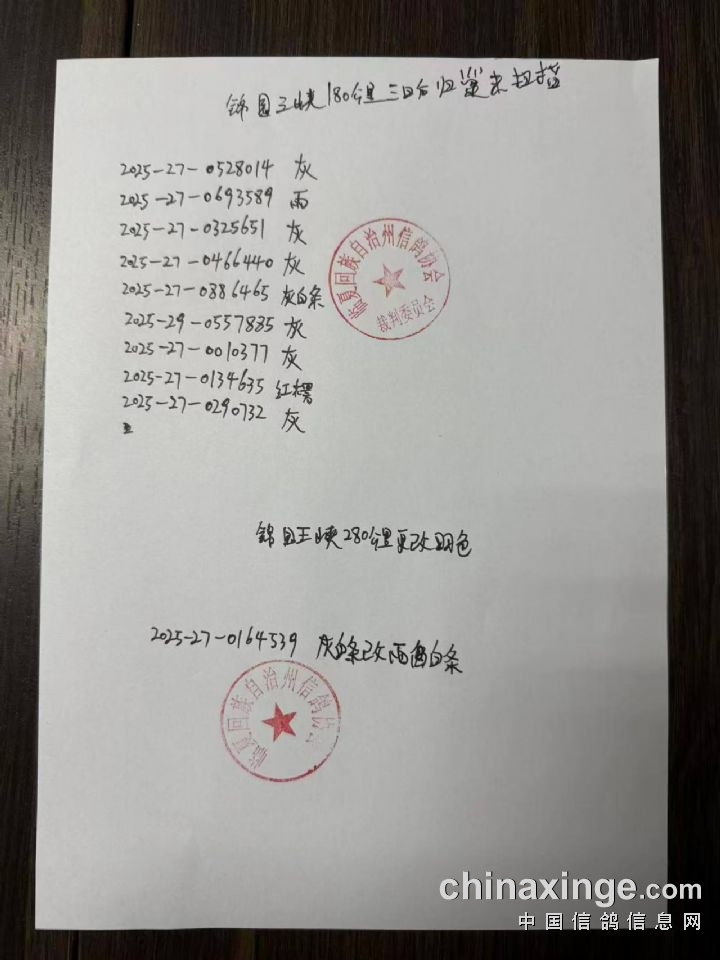 锦园三峡180公里三日后归巢未扫描
2025-27-0528014 灰
2025-27-0693589 雨
2025-27-0325651 灰
2025-27-0466440 灰
2025-27-0886465 灰白条
2025-29-0557885 灰
2025-27-0010377 灰
2025-27-0134635 红楞
2025-27-0290732 灰
临夏回族自治州信鸽协会
裁判委员会
锦园三峡280公里更改羽色
2025-27-0164539 灰白条改雨白条
临夏回族自治州信鸽协会
chinaxinge.com
中国信鸽信息网